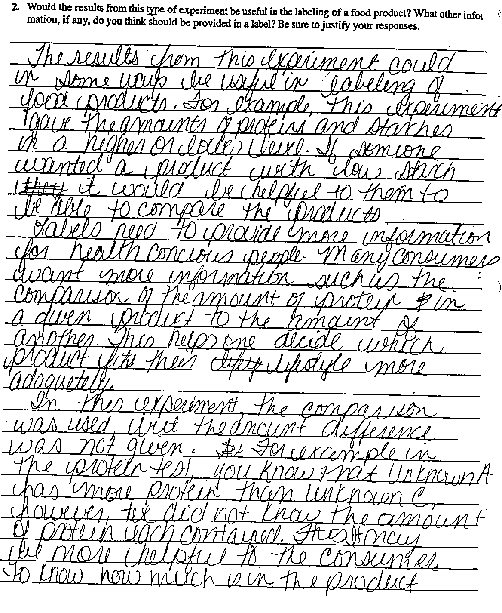 2. Would the results from this type of experiment be useful in the labeling of a food product? What other infor
mation, if any, do you think should be provided in a label? Be sure to justify your responses.
The results from this experiment could
in some ways be useful in labeling of
food products. For example, this experiment
gave the amounts of protein and starches
in a higher or lower level. If someone
wanted a product with low starch
it would be helpful to them to
be able to compare the products
Labels need to provide more information
for health concious people. Many consumers
want more information such as the
comparison of the amount of protein in
a given product to the amount of
another. This helps one decide which
product fits their lifestyle more
adaquetely.
In this experiment, the comparison
was used, but the amount difference
was not given. For example in
the protein test, you know that Unknown A
has more protein than Unknown C,
however, did not know the amount
of protein each contained. This may
be more helpful to the consumer
to know how much is in the product